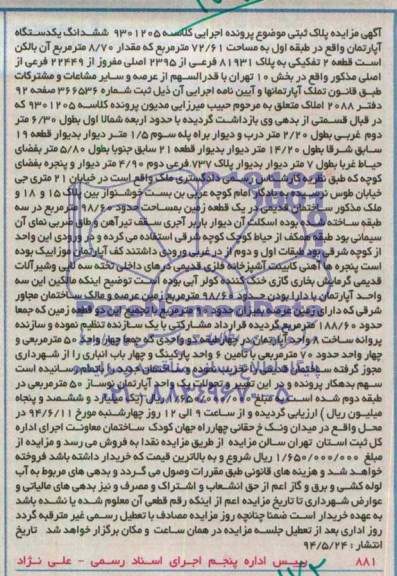 آگهی مزایده پلاک ثبتی موضوع پرونده اجرایی کلاسه ۹۳۰۱۲۰۵ ششدانگ یکدستگاه
آپارتمان واقع در طبقه اول به مساحت ۷۲/۶۱ مترمربع که مقدار ۸/۷۰ مترمربع آن بالکن
است قطعه ۲ تفکیکی به پلاک ۸۱۹۳۱ فرعی از ۲۳۹۵ اصلی مفروز از ۲۲۴۴۹ فرعی از
اصلی مذکور واقع در بخش ۱۰ تهران با قدرالسهم از عرصه و سایر مشاعات و مشترکات
طبق قانون تملک آپارتمانها و آیین نامه اجرایی آن ذیل ثبت شماره ۳۶۶۵۳۶ صفحه ۹۲
دفتر ۲۰۸۸ املاک متعلق به مرحوم حبیب میرزایی مدیون پرونده کلاسه ۹۳۰۱۲۰۵ که
در قبال قسمتی از بدهی وی بازداشت گردیده با حدود اربعه شمالا اول بطول ۶/۳۰ متر
دوم غربی بطول ۲/۲۰ متر درب و دیوار براه پله سوم ۱/۵ متر دیوار بدیوار قطعه ۱۹
سابق شرقا بطول ۱۴/۲۰ متر دیوار بدیوار قطعه ۲۱ سابق جنوبا بطول ۵/۸۰ متر بفضای
حیاط غربا بطول ۷ متر دیوار بدیوار پلاک ۷۳۷ فرعی دوم ۴/۹۰ متر دیوار و پنجره بفضای
کوچه که طبق نظریه کارشناس رسمی دادگستری ملک واقع است در خیابان ۲۱ متری جی
خیابان طوس نرسیده به یادگار امام کوچه علی بن بست خوشنواز بین پلاک ۱۵ و ۱۸ و
ملک مذکور ساختمان قدیمی در یک قطعه زمین بمساحت حدود ۹۸/۶۰ مترمربع در سه
طبقه ساخته شده بوده اسکلت آن دیوار باربر آجری سقف تیرآهن و طاق ضربی نمای آن
سیمانی بود طبقه همکف از حیاط کوچک کوچه شرقی استفاده می کرده و در ورودی این واحد
از کوچه شرقی بود طبقات اول و دوم از در غربی ورودی داشتند کف آپارتمان موزاییک بوده
است پنجره ها آهنی کابینت آشپزخانه فلزی قدیمی در های داخلی تخته سه لایی وشیرآلات
قدیمی گرمایش بخاری گازی خنک کننده کولر آبی بوده است توضیح اینکه مالکین این سه
واحد آپارتمان با دارا بودن حدود ۹۸/۶۰ مترمربع زمین عرصه و مالک ساختمان مجاور
شرقی که دارای زمین عرصه بمیزان حدود ۹۰ مترمربع با تجمیع این دو قطعه زمین که جمعا
حدود ۱۸۸/۶۰ مترمربع گردیده قرارداد مشارکتی با یک سازنده تنظیم نموده و سازنده
پروانه ساخت ۸ واحد آپارتمان در چهار طبقه دو واحدی که جمعا چهار واحد ۵۰ مترمربعی و
چهار واحد حدود ۷۰ مترمربعی با تأمین ۶ واحد پارکینگ و چهار باب انباری را از شهرداری
سهم بدهکار پرونده در این تغییر و تحولات یک واحد آپارتمان نوساز ۵۰ مترمربعی در
میلیون ریال ) ارزیابی گردیده و از ساعت ۹ الی ۱۲ روز چهارشنبه مورخ ۹۴/۶/۱۱ در
محل واقع در میدان ونک خ حقانی چهارراه جهان کودک ساختمان معاونت اجرای اداره
کل ثبت استان تهران سالن مزایده از طریق مزایده نقدا به فروش می رسد و مزایده از
مبلغ ۱/۶۵۰/۰۰۰/۰۰۰ ریال شروع و به بالاترین قیمت که خریدار داشته باشد فروخته
خواهد شد و هزینه های قانونی طبق مقررات وصول می گردد و بدهی های مربوط به آب
لوله کشی و برق و گاز اعم از حق انشعاب و اشتراک و مصرف و نیز بدهی های مالیاتی و
عوارض شهرداری تا تاریخ مزایده اعم از اینکه رقم قطعی آن معلوم شده یا نشده باشد
به عهده خریدار است ضمنا چنانچه روز مزایده مصادف با تعطیل رسمی غیر مترقبه گردد
روز اداری بعد از تعطیل جلسه مزایده در همان ساعت و مکان برگزار خواهد شد تاریخ
انتشار : ۹۴/۵/۲۴
۸۸۱ رییس اداره پنجم اجرای اسناد رسمی - علی نژاد